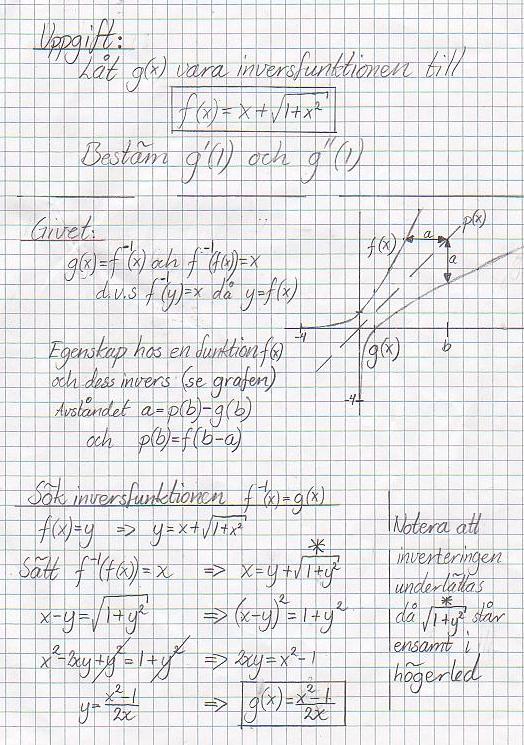 Uppgift:
Låt g(x) vara inversfunktionen till
f(x) = x + √(1+x²)
Bestäm g'(1) och g''(1)
Givet:
g(x) = f⁻¹(x) och f⁻¹(f(x)) = x
d.v.s f⁻¹(y) = x då y = f(x)
f(x) a p(x)
a
-4 g(x) b
-4
Egenskap hos en funktion f(x)
och dess invers (se grafen)
Avståndet a = p(b) - g(b)
och p(b) = f(b-a)
Sök inversfunktionen f⁻¹(x) = g(x)
f(x) = y ⇒ y = x + √(1+x²)
*
Sätt f⁻¹(f(x)) = x ⇒ x = y + √(1+y²)
x-y = √(1+y²) ⇒ (x-y)² = 1+y²
x² - 2xy + y² = 1 + y² ⇒ 2xy = x² - 1
y = (x²-1)/2x ⇒ g(x) = (x²-1)/2x
Notera att
inverteringen
underlättas
*
då √(1+y²) står
ensamt i
högerled